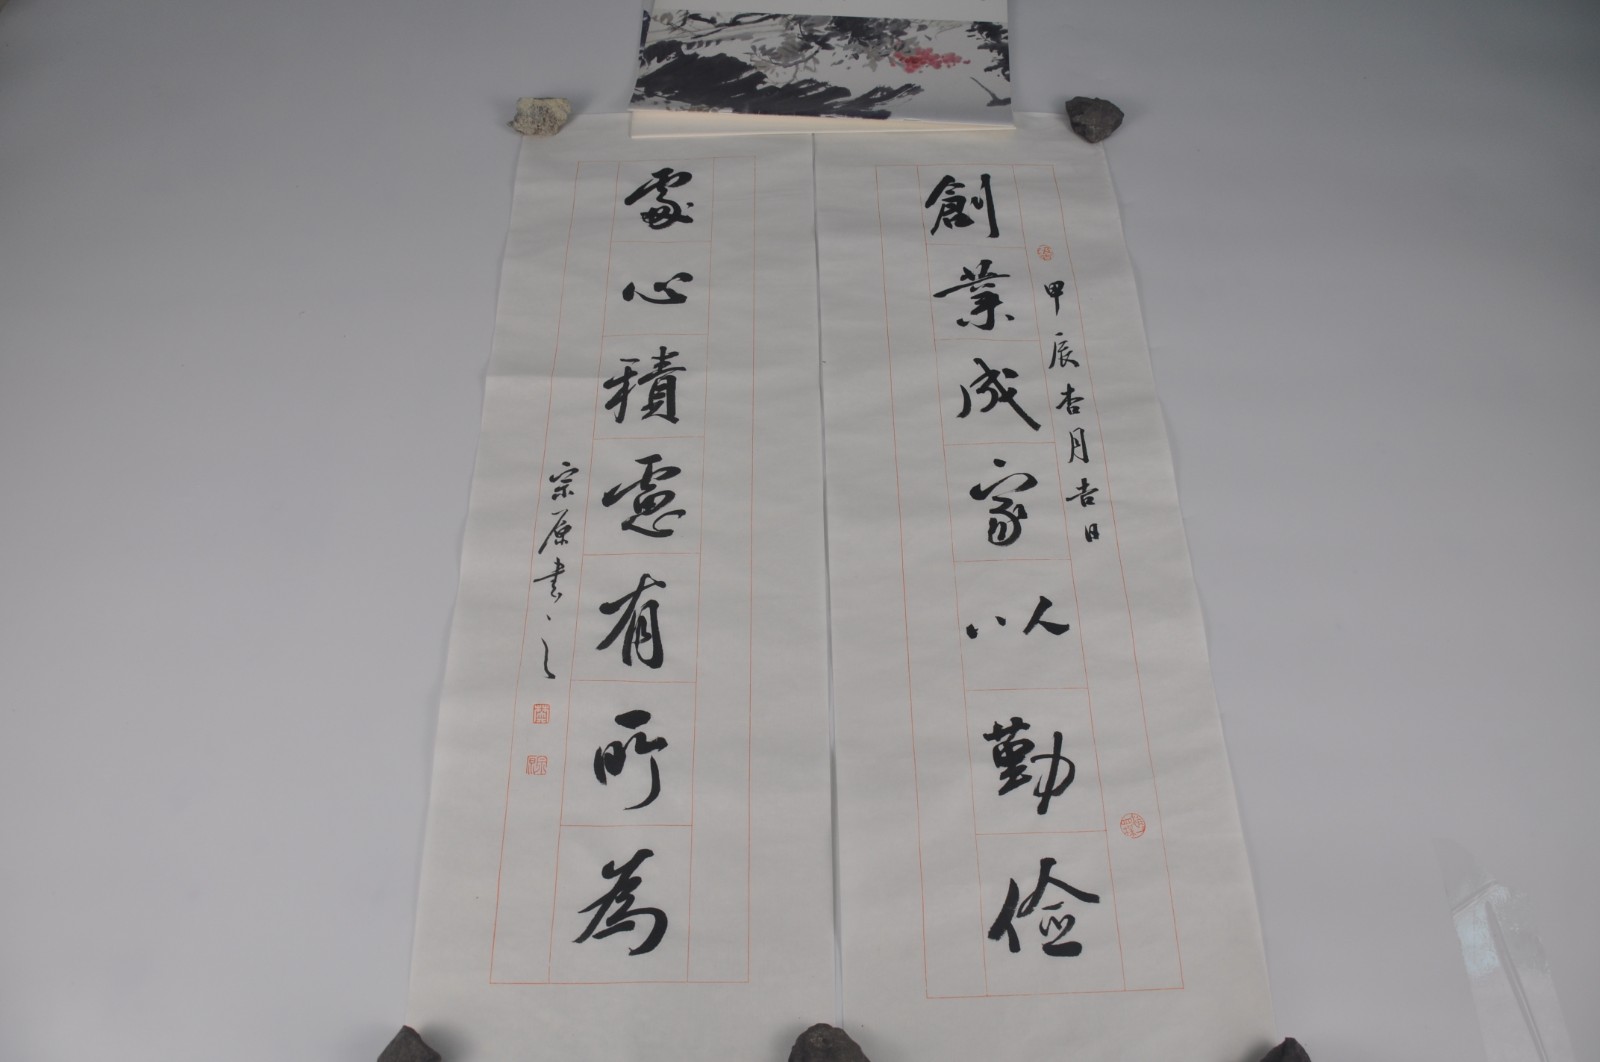 創業成家以勤儉
甲辰杏月吉日
處心積慮有所為
宗原書之